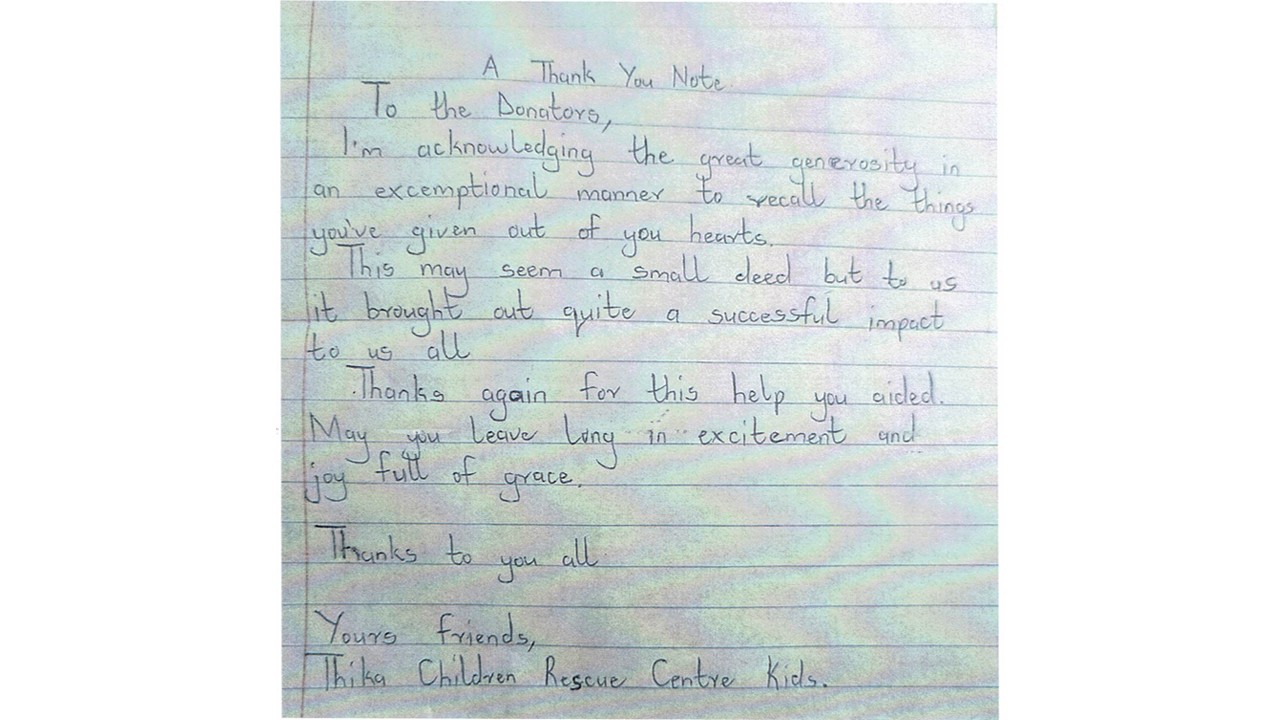 A Thank You Note
To the Donators,
I'm acknowledging the great generosity in
an excemptional manner to recall the things
you've given out of you hearts.
This may seem a small deed but to us
it brought out quite a successful impact
to us all
Thanks again for this help you aided.
May you leave long in excitement and
joy full of grace.
Thanks to you all
Yours friends,
Thika Children Rescue Centre Kids.